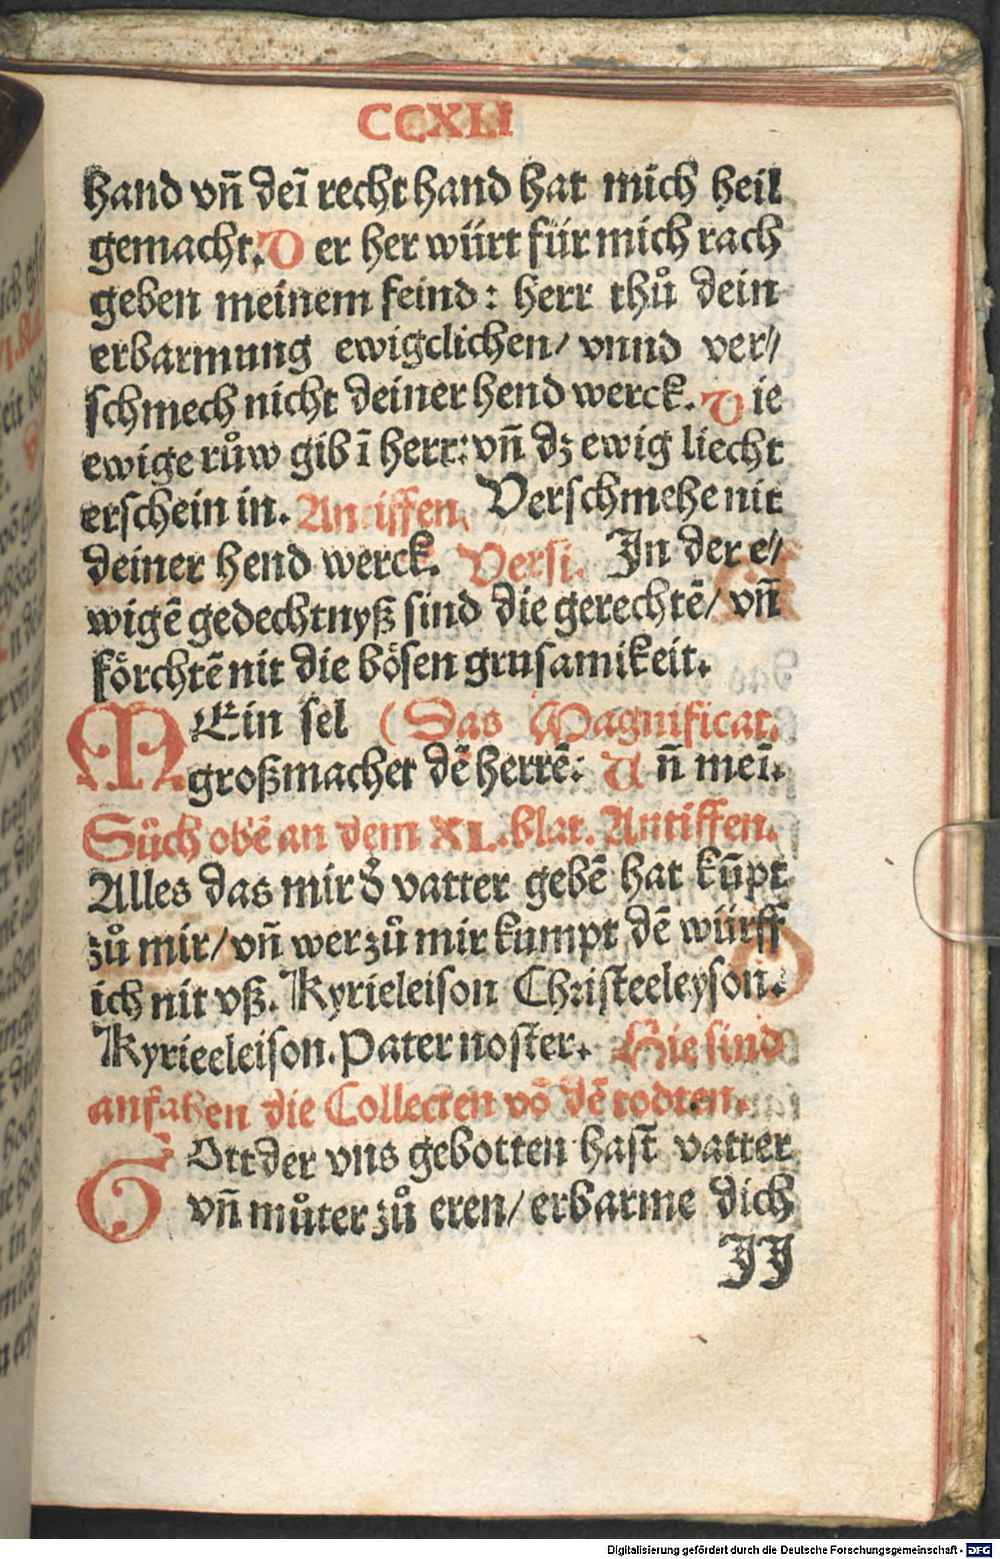 CCXLI
hand vñ deī recht hand hat mich heil
gemacht. D er her würt für mich rach
geben meinem feind: herr thů dein
erbarmung ewigclichen/ vnnd ver⸗
schmech nicht deiner hend werck. D ie
ewige růw gib ī herr: vñ dz ewig liecht
erschein in. Antiffen. Verschmehe nit
deiner hend werck. Versi. In der e⸗
wigē gedechtnyß sind die gerechtē/ vñ
förchtē nit die bösen grusamikeit.
MEin sel (Das Magnificat.
großmachet dē herrē: V ñ meī.
Sůch obē an dem XL. blat. Antiffen.
Alles das mir d̊ vatter gebē hat kūpt
zů mir/ vñ wer zů mir kumpt dē würff
ich nit vß. Kyrieleison Christeeleyson.
Kyrieeleison. Pater noster. Hie sind
anfahen die Collecten vō dē todten.
GOtt der vns gebotten hast vatter
vñ můter zů eren/ erbarme dich
JJ
Digitalisierung gefördert durch die Deutsche Forschungsgemeinschaft - DFG